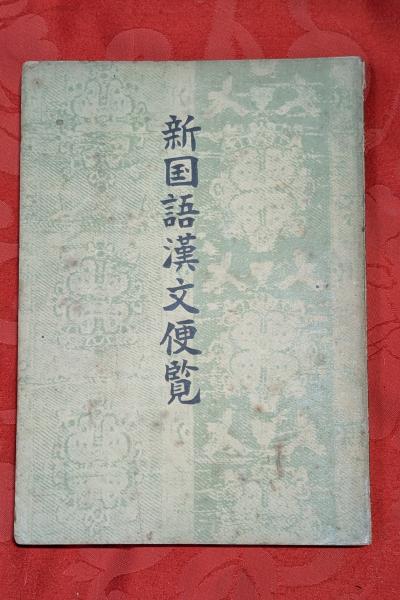 新国語漢文便覧